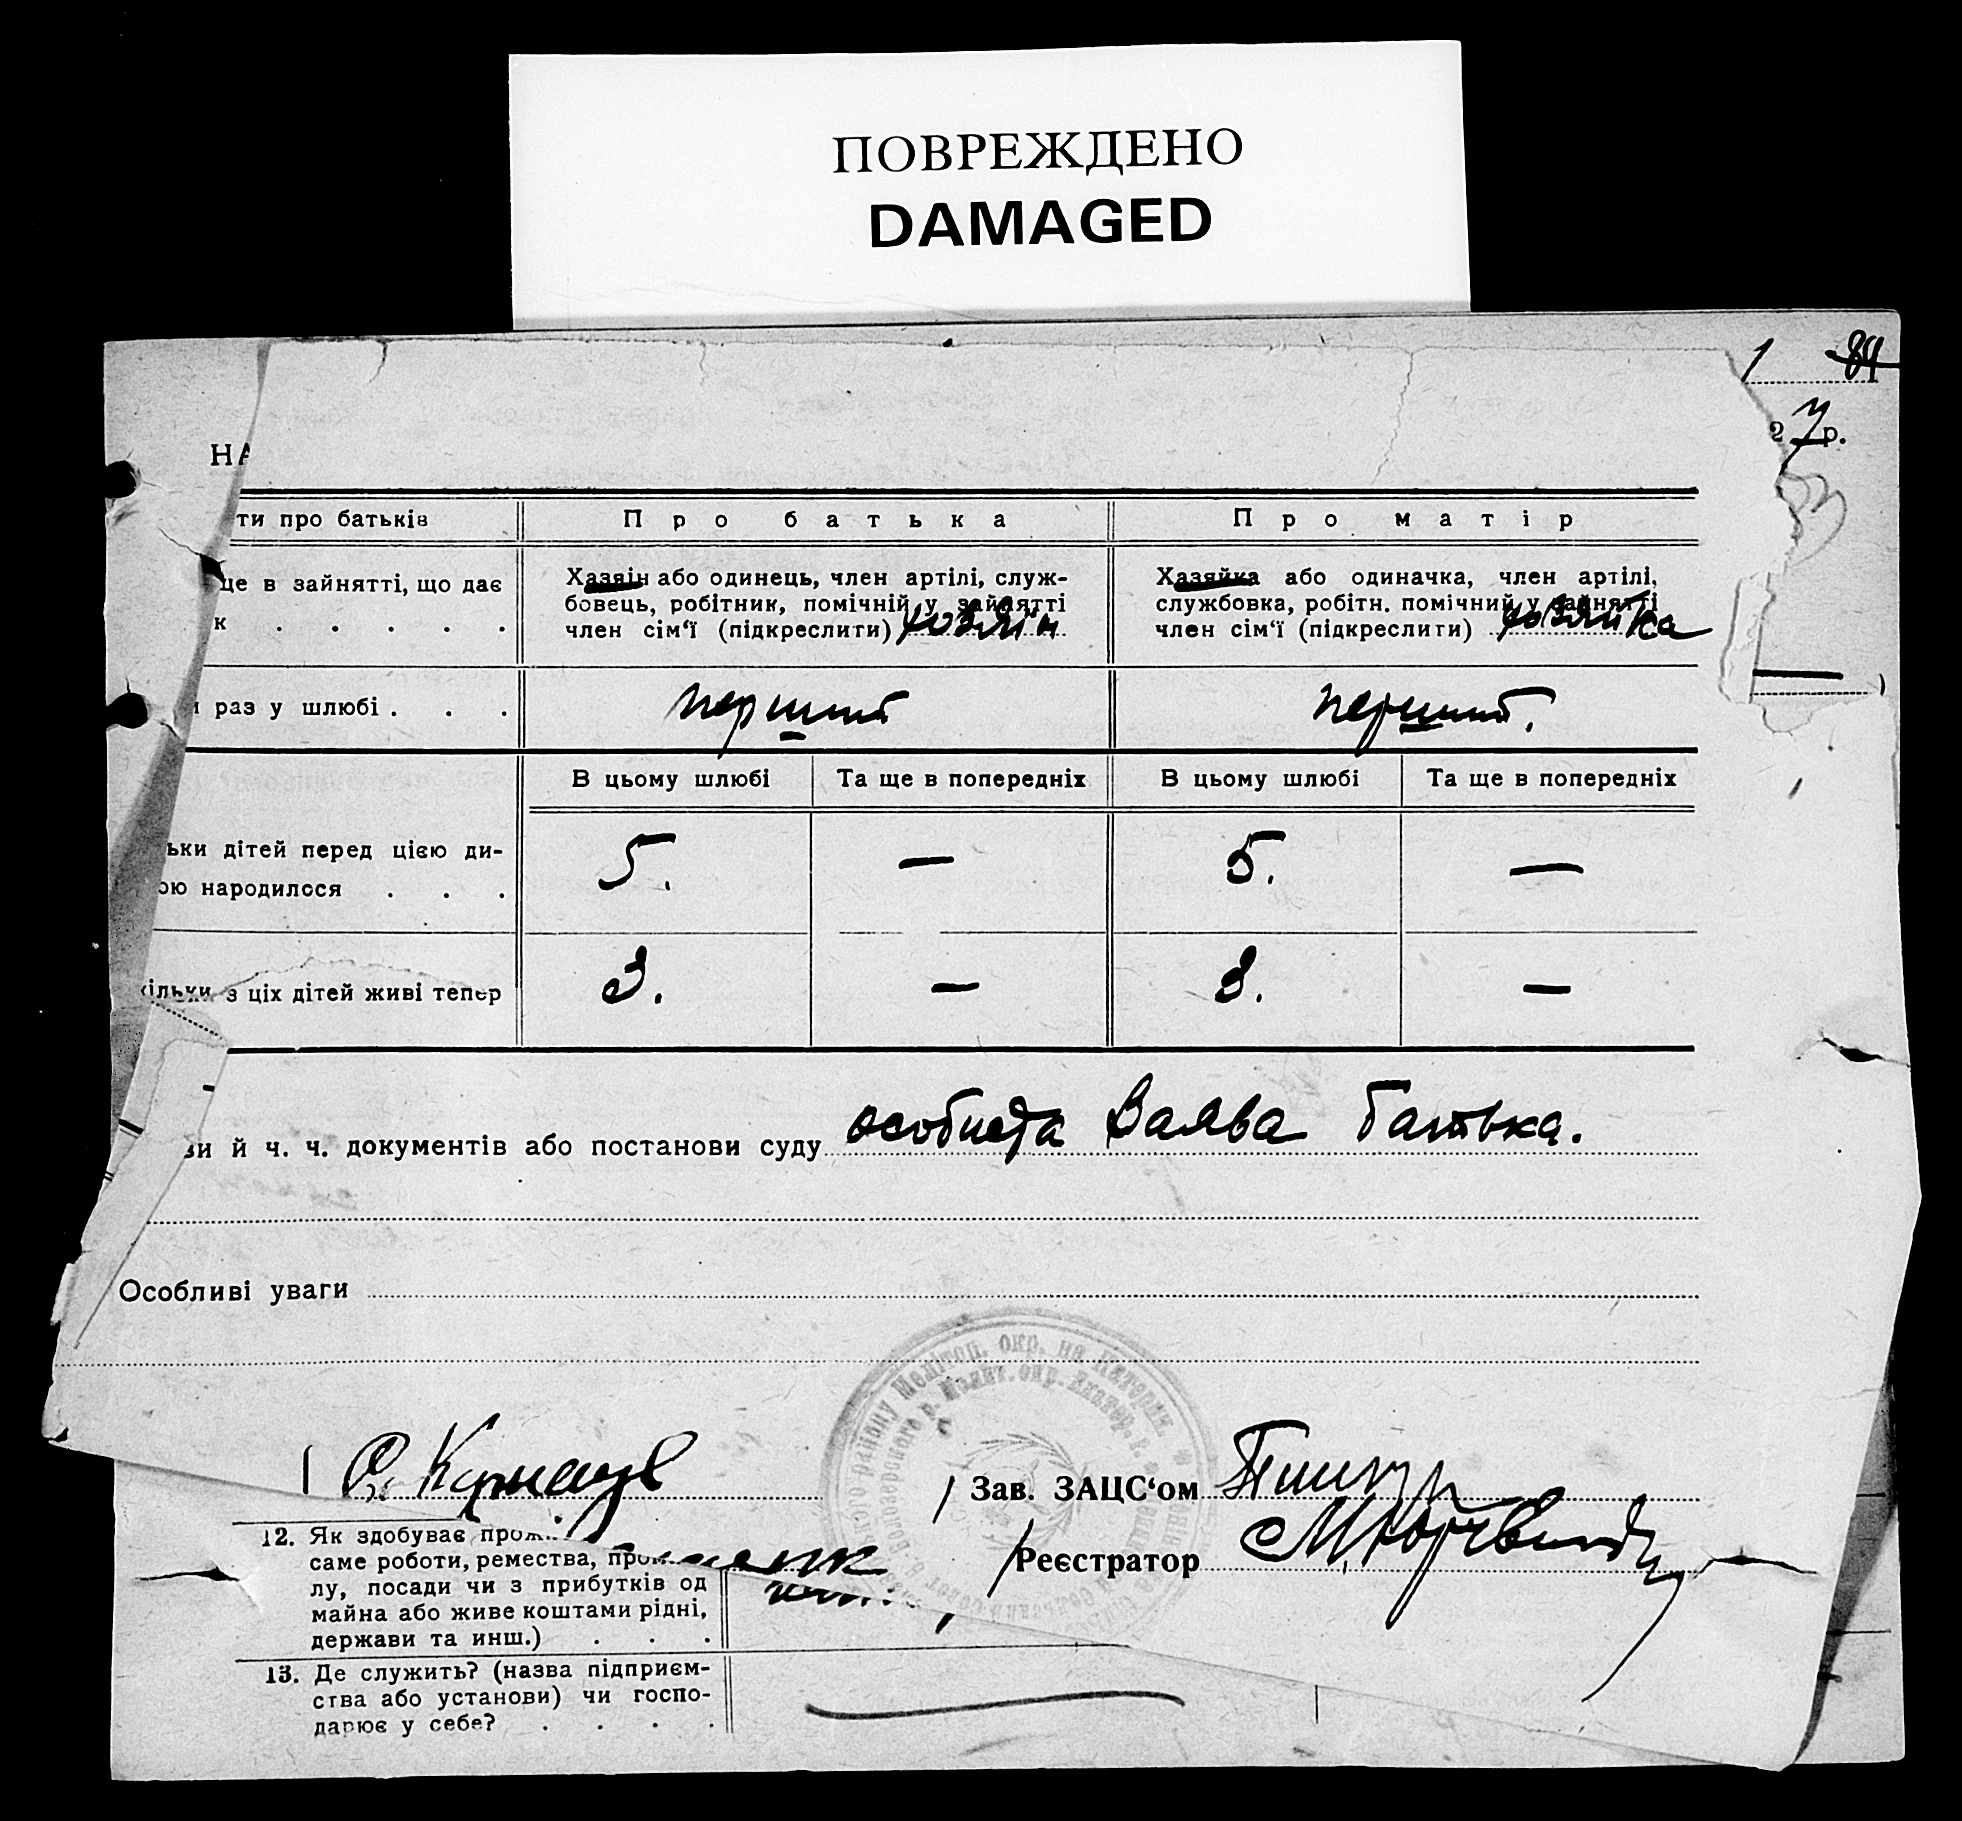 ПОВРЕЖДЕНО
DAMAGED
1 84
27р.
НА
ти про батьків
Про батька
Про матір
це в зайнятті, що дає
к . . . . .
Хазяїн або одинець, член артілі, служ-
бовець, робітник, помічній у зайнятті
член сім'ї (підкреслити) хозяін
Хазяйка або одиначка, член артілі,
службовка, робітн. помічний у зайнятті
член сім'ї (підкреслити) хозяйка
раз у шлюбі . . .
перший
перший.
В цьому шлюбі
Та ще в попередніх
В цьому шлюбі
Та ще в попередніх
ьки дітей перед цією ди-
ою народилося . . .
5. — 5. —
кільки з ціх дітей живі тепер
3. — 3. —
ви й ч. ч. документів або постанови суду особиста Заява батька.
Особливі уваги
Зав. ЗАЦС'ом
Реєстратор
району Мелітоп. окр. на Катерин.
12. Як здобуває прож
саме роботи, ремества, пром
лу, посади чи з прибутків од
майна або живе коштами рідні,
держави та инш.) . . .
13. Де служить? (назва підприєм-
ства або установи) чи госпо-
дарює у себе? . . . .